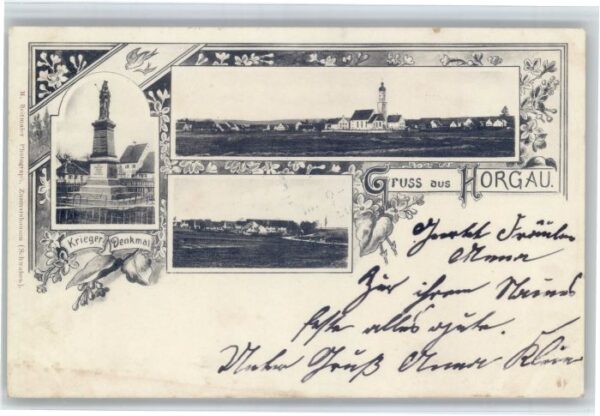 Gruss aus Horgau.
Krieger Denkmal
Photograph, Zusmarshausen (Schwaben).
Fräulein
Anna
Zur ihrem Namens
feste alles gute.
Unter Gruß Anna Klein